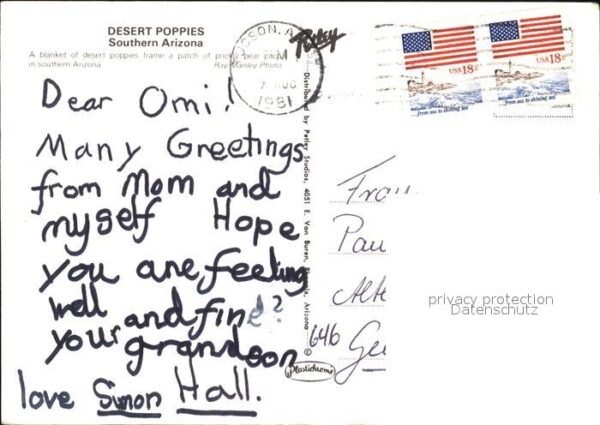 DESERT POPPIES
Southern Arizona
A blanket of desert poppies frame a patch of prickly pear pads
in southern Arizona. Ray Manley Photo
Dear Omi!
Many Greetings
from Mom and
myself Hope
you are feeling
well and fine?
your grandson
love Simon Hall.
Petley
1981
Distributed by Petley Studios, 4051 E. Van Buren, Phoenix, Arizona
Plastichrome
©
USA 18c
from sea to shining sea
USA 18c
from sea to shining sea
Frau
Pau
Alte
646
Ge
privacy protection
Datenschutz